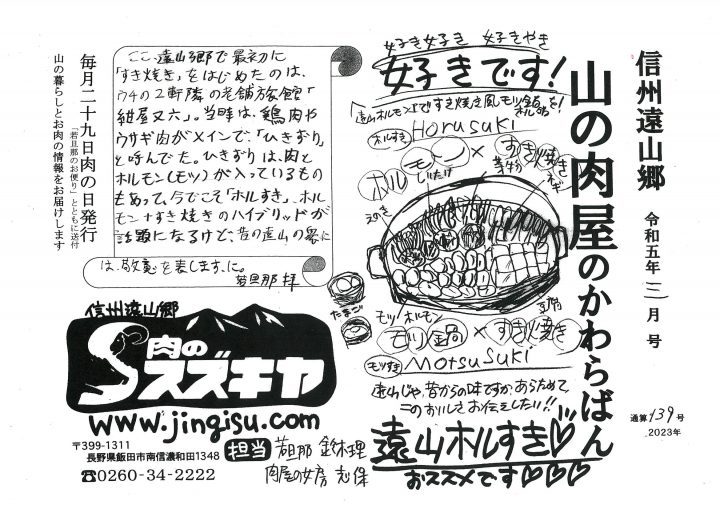 信州遠山郷
山の肉屋のかわらばん
令和五年三月号
通算139号
2023年
好き好き 好きやき
好きです!
「遠山ホルモン」ですき焼き風モツ鍋を!
ホルすき
Horusuki
ホルモン×すき焼き
しいたけ
春菊
ネギ
えのき
豆腐
たまご
モツ ホルモン
モツ鍋×すき焼き
モツすき
Motsusuki
遠山じゃ、昔からの味ですが、あらためて
このおいしさお伝えしたい!!
遠山ホルすき♡♡
おススメです♡♡♡
ここ、遠山郷で最初に
「すき焼き」をはじめたのは、
ウチの2軒隣の老舗旅館「
紺屋又六」。当時は、鶏肉や
ウサギ肉がメインで、「ひきずり」
と呼んでた。ひきずりは、肉と
ホルモン(モツ)が入っているもの
もあって、今でこそ「ホルすき」、ホル
モン+すき焼きのハイブリッドが
話題になるけど、昔の遠山の衆に
は、敬意を表します、に。
若旦那 拝
毎月二十九日肉の日発行
「若旦那のお便り」とともに送付
山の暮らしとお肉の情報をお届けします
信州遠山郷
肉のスズキヤ
www.jingisu.com
〒399-1311
長野県飯田市南信濃和田1348
☎0260-34-2222
担当
若旦那 鈴木理
肉屋の女房 志保